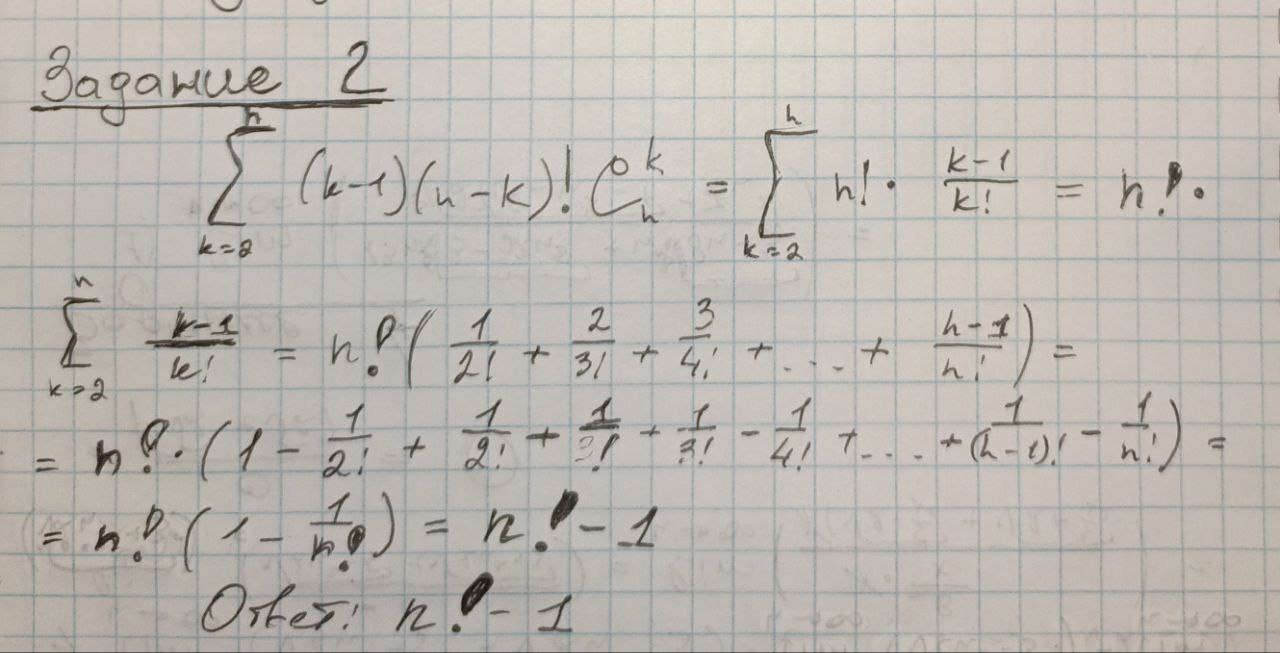 Задание 2
\sum_{k=2}^{n} (k-1)(n-k)! C_n^k = \sum_{k=2}^{n} n! \cdot \frac{k-1}{k!} = n! \cdot
\sum_{k=2}^{n} \frac{k-1}{k!} = n! ( \frac{1}{2!} + \frac{2}{3!} + \frac{3}{4!} + ... + \frac{n-1}{n!} ) =
= n! \cdot ( 1 - \frac{1}{2!} + \frac{1}{2!} + \frac{1}{3!} + \frac{1}{3!} - \frac{1}{4!} + ... + \frac{1}{(n-1)!} - \frac{1}{n!} ) =
= n! ( 1 - \frac{1}{n!} ) = n! - 1
Ответ: n! - 1